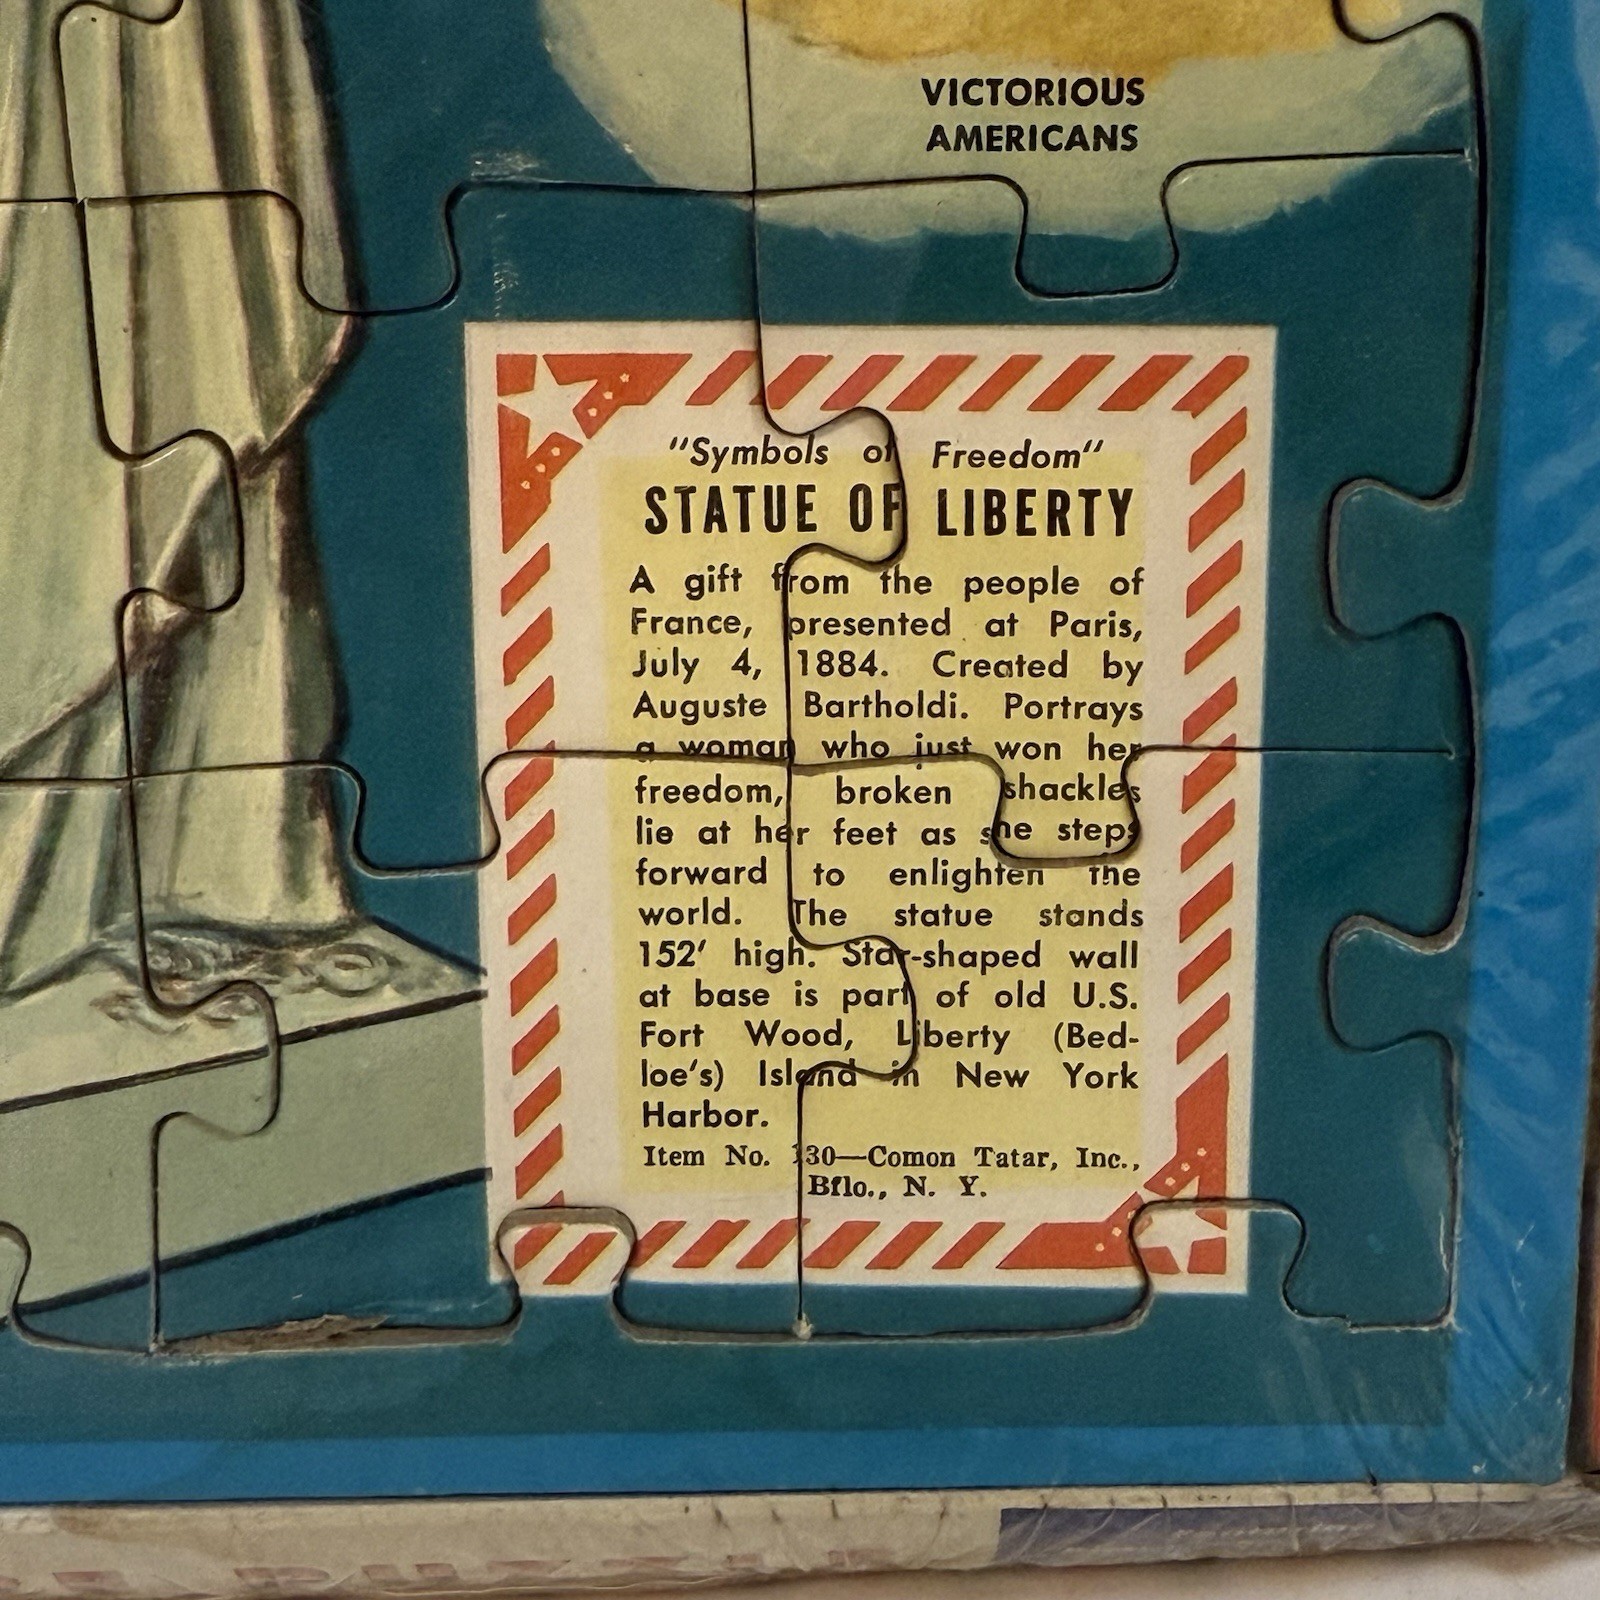 VICTORIOUS
AMERICANS
"Symbols of Freedom"
STATUE OF LIBERTY
A gift from the people of
France, presented at Paris,
July 4, 1884. Created by
Auguste Bartholdi. Portrays
a woman who just won her
freedom, broken shackles
lie at her feet as she steps
forward to enlighten the
world. The statue stands
152' high. Star-shaped wall
at base is part of old U.S.
Fort Wood, Liberty (Bed-
loe's) Island in New York
Harbor.
Item No. 130—Comon Tatar, Inc.,
Bflo., N. Y.